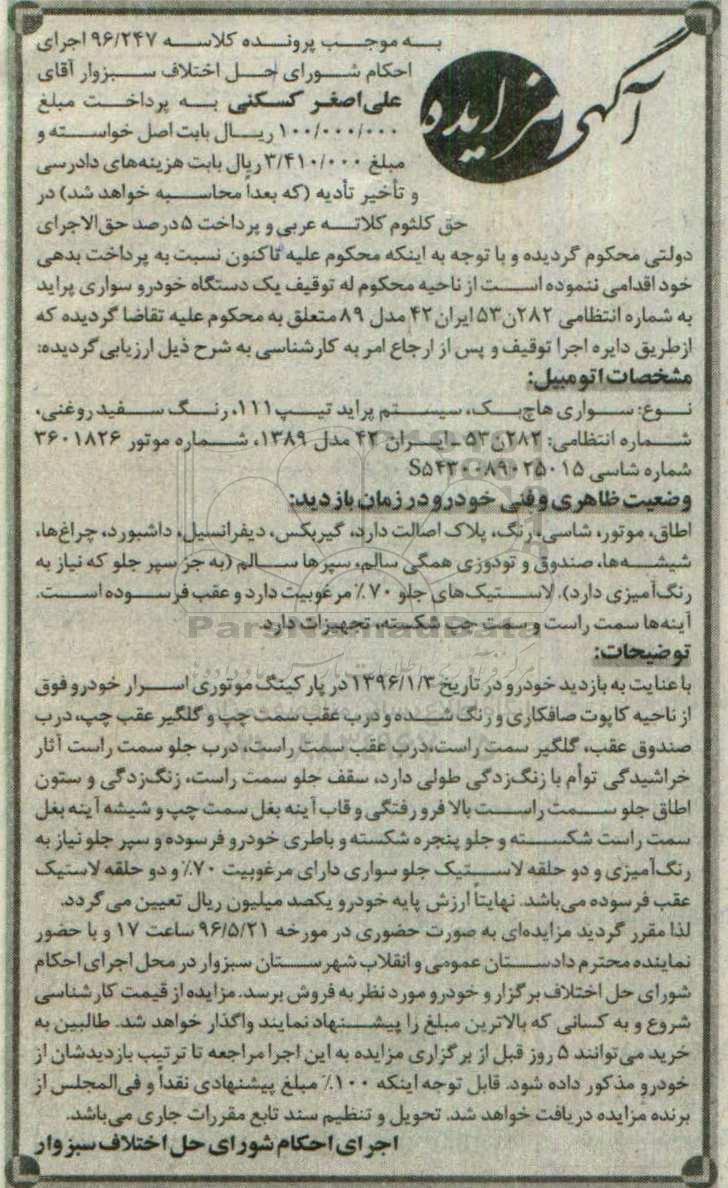 آگهی مزایده
به موجب پرونده کلاسه ۹۶/۲۴۷ اجرای
احکام شورای حل اختلاف سبزوار آقای
علی‌اصغر کسکنی به پرداخت مبلغ
۱۰۰/۰۰۰/۰۰۰ ریال بابت اصل خواسته و
مبلغ ۳/۴۱۰/۰۰۰ ریال بابت هزینه‌های دادرسی
و تأخیر تأدیه (که بعداً محاسبه خواهد شد) در
حق کلثوم کلاته عربی و پرداخت ۵درصد حق‌الاجرای
دولتی محکوم گردیده و با توجه به اینکه محکوم علیه تاکنون نسبت به پرداخت بدهی
خود اقدامی ننموده است از ناحیه محکوم له توقیف یک دستگاه خودرو سواری پراید
به شماره انتظامی ۲۸۲ن۵۳ ایران۴۲ مدل ۸۹ متعلق به محکوم علیه تقاضا گردیده که
ازطریق دایره اجرا توقیف و پس از ارجاع امر به کارشناسی به شرح ذیل ارزیابی گردیده:
مشخصات اتومبیل:
نوع: سواری هاچ‌بک، سیستم پراید تیپ۱۱۱، رنگ سفید روغنی،
شماره انتظامی: ۲۸۲ن۵۳ ـ ایران ۴۲ مدل ۱۳۸۹، شماره موتور ۳۶۰۱۸۲۶
شماره شاسی S۵۴۳۰۰۸۹۰۲۵۰۱۵
وضعیت ظاهری و فنی خودرو در زمان بازدید:
اطاق، موتور، شاسی، رنگ، پلاک اصالت دارد، گیربکس، دیفرانسیل، داشبورد، چراغ‌ها،
شیشه‌ها، صندوق و تودوزی همگی سالم، سپرها سالم (به جز سپر جلو که نیاز به
رنگ‌آمیزی دارد). لاستیک‌های جلو ۷۰٪ مرغوبیت دارد و عقب فرسوده است.
آینه‌ها سمت راست و سمت چپ شکسته، تجهیزات دارد.
ParsNamadData
توضیحات:
با عنایت به بازدید خودرو در تاریخ ۱۳۹۶/۱/۳ در پارکینگ موتوری اسرار خودرو فوق
از ناحیه کاپوت صافکاری و رنگ شده و درب عقب سمت چپ و گلگیر عقب چپ، درب
صندوق عقب، گلگیر سمت راست،درب عقب سمت راست، درب جلو سمت راست آثار
خراشیدگی توأم با زنگ‌زدگی طولی دارد، سقف جلو سمت راست، زنگ‌زدگی و ستون
اطاق جلو سمت راست بالا فرورفتگی و قاب آینه بغل سمت چپ و شیشه آینه بغل
سمت راست شکسته و جلو پنجره شکسته و باطری خودرو فرسوده و سپر جلو نیاز به
رنگ‌آمیزی و دو حلقه لاستیک جلو سواری دارای مرغوبیت ۷۰٪ و دو حلقه لاستیک
عقب فرسوده می‌باشد. نهایتاً ارزش پایه خودرو یکصد میلیون ریال تعیین می‌گردد.
لذا مقرر گردید مزایده‌ای به صورت حضوری در مورخه ۹۶/۵/۲۱ ساعت ۱۷ و با حضور
نماینده محترم دادستان عمومی و انقلاب شهرستان سبزوار در محل اجرای احکام
شورای حل اختلاف برگزار و خودرو مورد نظر به فروش برسد. مزایده از قیمت کارشناسی
شروع و به کسانی که بالاترین مبلغ را پیشنهاد نمایند واگذار خواهد شد. طالبین به
خرید می‌توانند ۵ روز قبل از برگزاری مزایده به این اجرا مراجعه تا ترتیب بازدیدشان از
خودرو مذکور داده شود. قابل توجه اینکه ۱۰۰٪ مبلغ پیشنهادی نقداً و فی‌المجلس از
برنده مزایده دریافت خواهد شد. تحویل و تنظیم سند تابع مقررات جاری می‌باشد.
اجرای احکام شورای حل اختلاف سبزوار